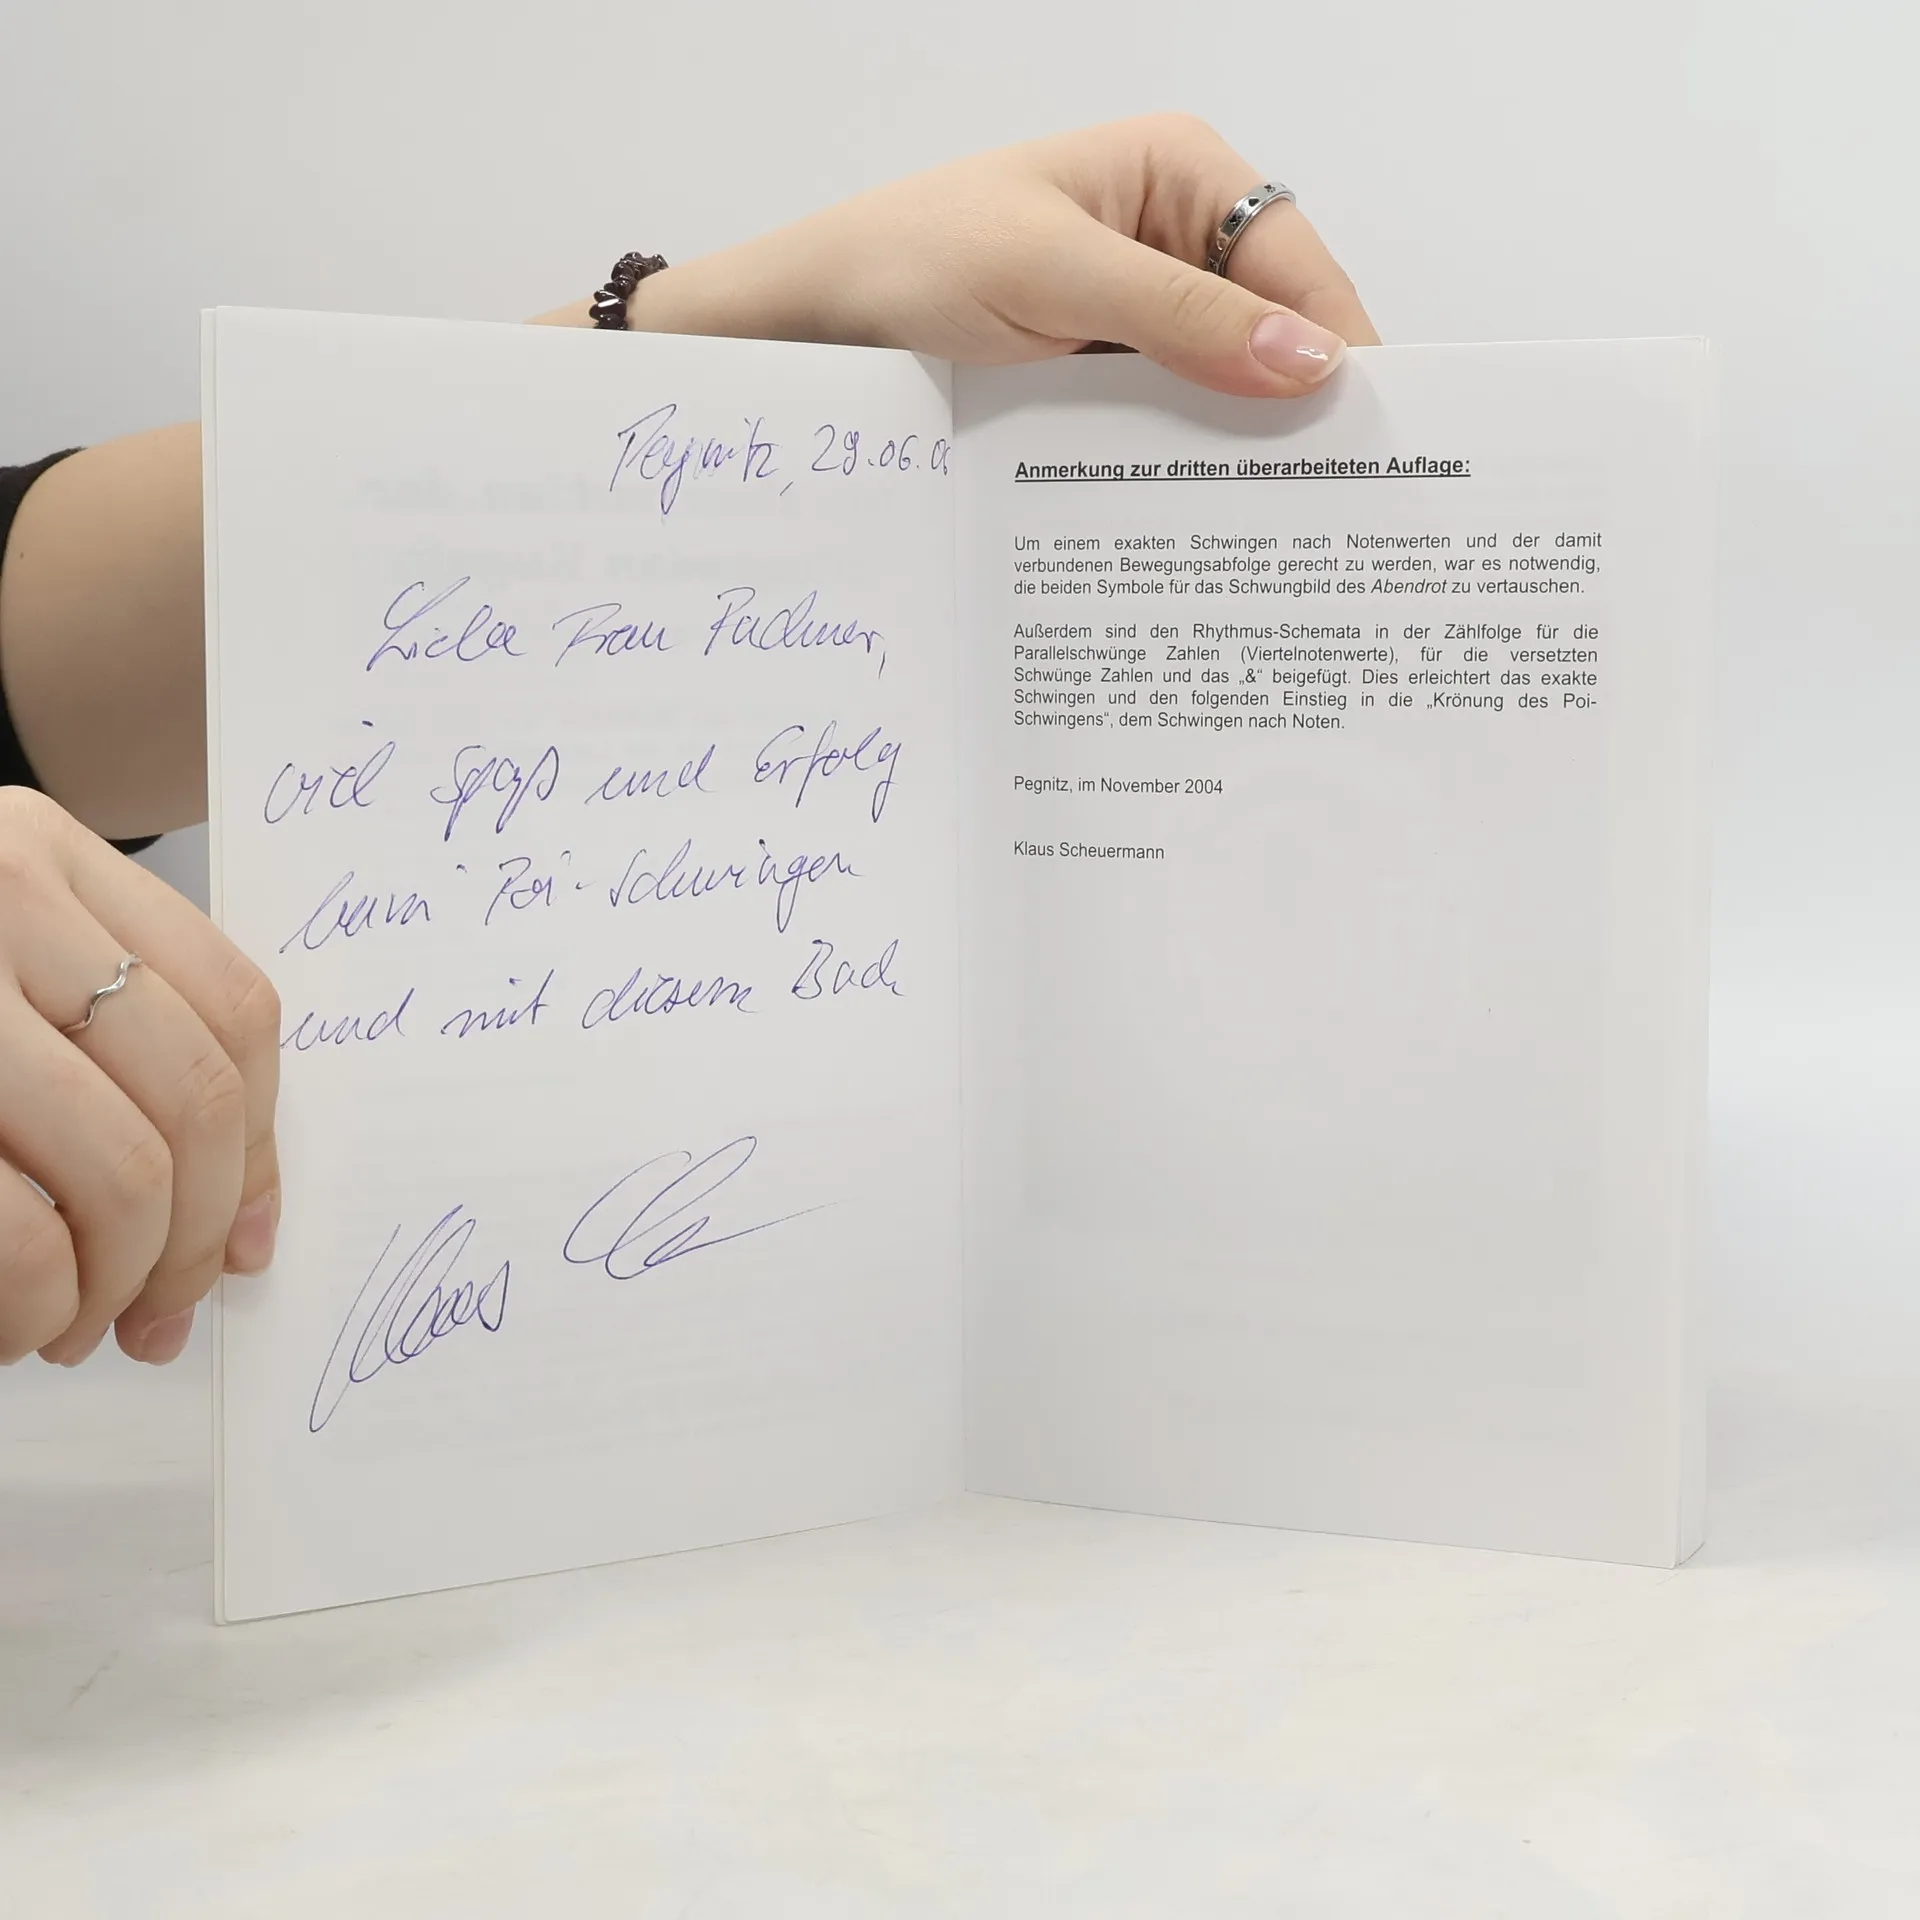 Pegnitz, 29.06.06
Liebe Frau
viel Spaß und Erfolg
beim Poi-Schwingen
und mit diesem Buch
Klaus
Anmerkung zur dritten überarbeiteten Auflage:
Um einem exakten Schwingen nach Notenwerten und der damit
verbundenen Bewegungsabfolge gerecht zu werden, war es notwendig,
die beiden Symbole für das Schwungbild des Abendrot zu vertauschen.
Außerdem sind den Rhythmus-Schemata in der Zählfolge für die
Parallelschwünge Zahlen (Viertelnotenwerte), für die versetzten
Schwünge Zahlen und das „&“ beigefügt. Dies erleichtert das exakte
Schwingen und den folgenden Einstieg in die „Krönung des Poi-
Schwingens“, dem Schwingen nach Noten.
Pegnitz, im November 2004
Klaus Scheuermann